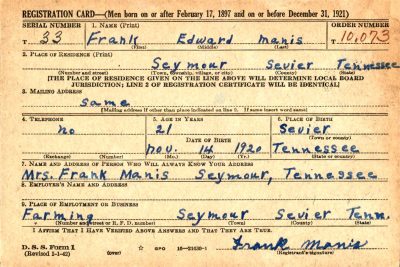 REGISTRATION CARD—(Men born on or after February 17, 1897 and on or before December 31, 1921)
SERIAL NUMBER 1. NAME (Print) ORDER NUMBER
T 33 Frank Edward Manis T 10,073
(First) (Middle) (Last)
2. PLACE OF RESIDENCE (Print)
Seymour Sevier Tennessee
(Number and street) (Town, township, village, or city) (County) (State)
[THE PLACE OF RESIDENCE GIVEN ON THE LINE ABOVE WILL DETERMINE LOCAL BOARD
JURISDICTION; LINE 2 OF REGISTRATION CERTIFICATE WILL BE IDENTICAL]
3. MAILING ADDRESS
Same
[Mailing address if other than place indicated on line 2. If same insert word same]
4. TELEPHONE 5. AGE IN YEARS 6. PLACE OF BIRTH
no 21 Sevier
DATE OF BIRTH (Town or county)
Nov. 14 1920 Tennessee
(Exchange) (Number) (Mo.) (Day) (Yr.) (State or country)
7. NAME AND ADDRESS OF PERSON WHO WILL ALWAYS KNOW YOUR ADDRESS
Mrs. Frank Manis Seymour, Tennessee
8. EMPLOYER'S NAME AND ADDRESS
9. PLACE OF EMPLOYMENT OR BUSINESS
Farming Seymour Sevier Tenn.
(Number and street or R. F. D. number) (Town) (County) (State)
I AFFIRM THAT I HAVE VERIFIED ABOVE ANSWERS AND THAT THEY ARE TRUE.
D. S. S. Form 1 GPO 16—21630-1 Frank Manis
(Revised 1-1-42) (over) (Registrant's signature)